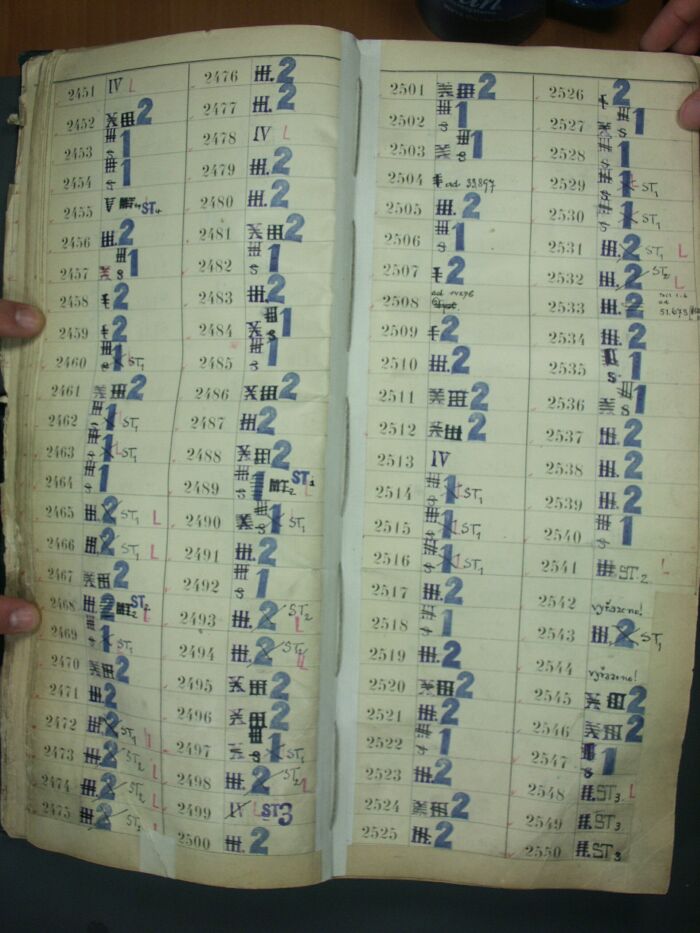 2451 IV L
2452 X III 2
2453 III s 1
2454 III s 1
2455 V ST4
2456 III. 2
2457 X III s 1
2458 2
2459 2
2460 1 ST1
2461 X III 2
2462 III 1 ST1
2463 III 1 ST1
2464 III s 1
2465 III. 2 ST1 L
2466 III. 2 ST1 L
2467 X III 2
2468 III 2 ST2 L
2469 III s 1 ST1
2470 X III 2
2471 III. 2
2472 III. 2 ST1 L
2473 III. 2 ST2 L
2474 III. 2 ST2 L
2475 III. 2 ST2 L
2476 III. 2
2477 III. 2
2478 IV L
2479 III. 2
2480 III. 2
2481 X III 2
2482 III s 1
2483 III. 2
2484 X III s 1
2485 III s 1
2486 X III 2
2487 III. 2
2488 X III 2
2489 III s 1 L
2490 X III s 1 ST1
2491 III. 2
2492 III s 1
2493 III. 2 ST2 L
2494 III. 2 ST2 L
2495 X III 2
2496 X III 2
2497 X III s 1 ST1
2498 III. 2 ST2 L
2499 IV L ST3
2500 III. 2
2501 X III 2
2502 III s 1
2503 X III s 1
2504 ad 33,897
2505 III. 2
2506 III s 1
2507 2
2508 ad
2509 2
2510 III. 2
2511 X III 2
2512 X III 2
2513 IV
2514 III s 1 ST1
2515 III s 1 ST1
2516 III s 1 ST1
2517 III. 2
2518 III s 1
2519 III. 2
2520 X III 2
2521 III. 2
2522 III s 1
2523 III. 2
2524 X III 2
2525 III. 2
2526 2
2527 X III s 1
2528 III s 1
2529 III s 1 ST1
2530 III s 1 ST1
2531 III. 2 ST1 L
2532 III. 2 ST2 L
2533 III. 2 ad 51.673
2534 III. 2
2535 s. 1
2536 X III s 1
2537 III. 2
2538 III. 2
2539 III. 2
2540 III s 1
2541 III. ST.2 L
2542 vyřazeno!
2543 III. 2 ST1
2544 vyřazeno!
2545 X III 2
2546 X III 2
2547 s 1
2548 III. ST3. L
2549 III. ST3
2550 III. ST3